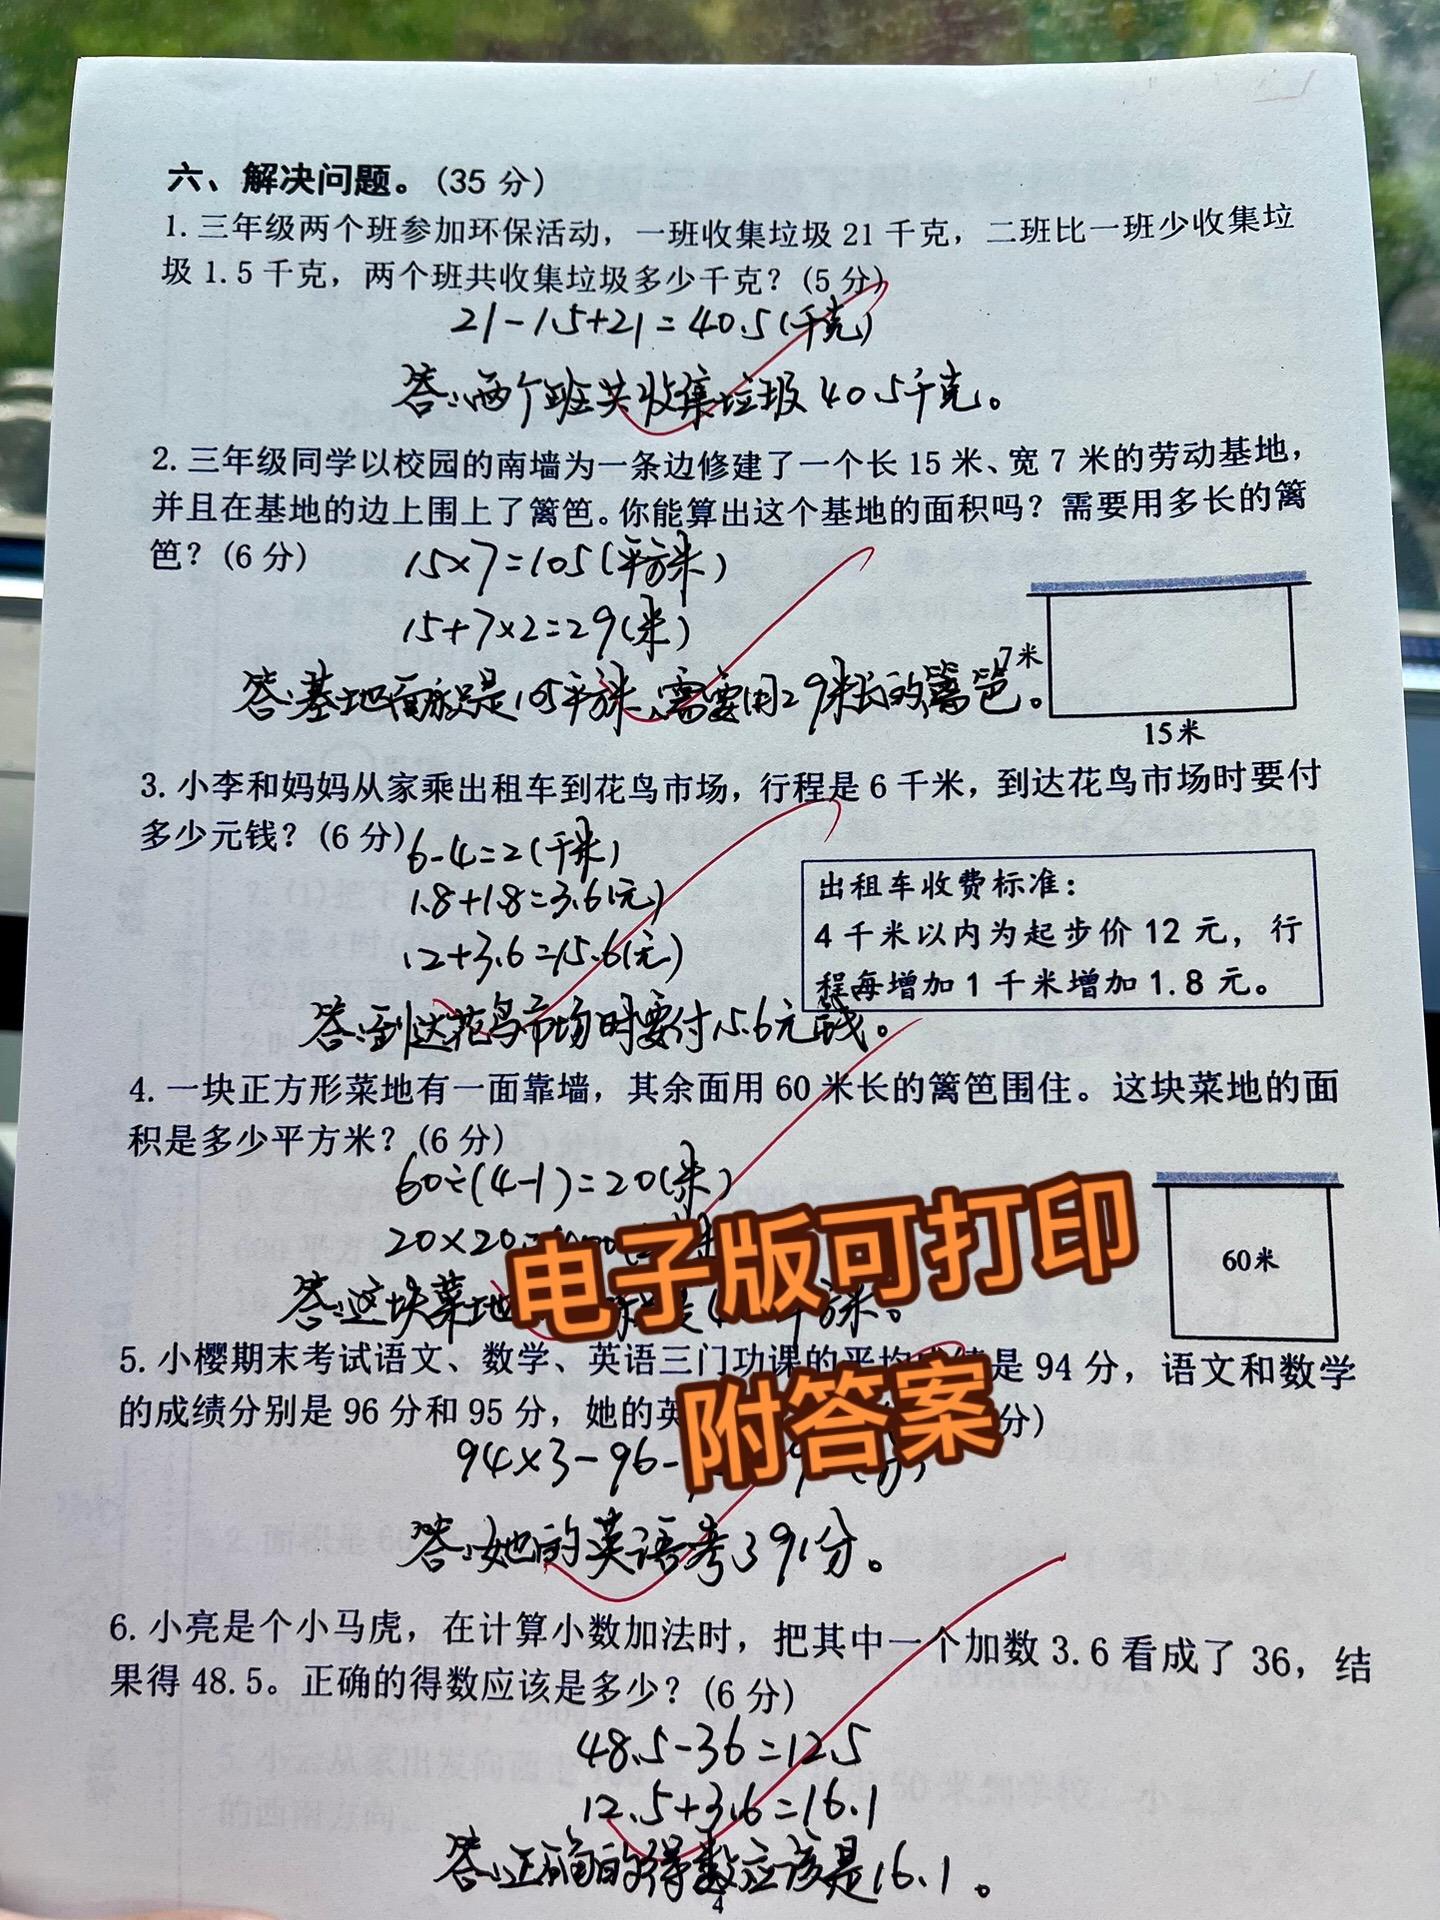 六、解决问题。(35 分)
1. 三年级两个班参加环保活动，一班收集垃圾 21 千克，二班比一班少收集垃
圾 1.5 千克，两个班共收集垃圾多少千克？(5 分)
21-1.5+21=40.5(千克)
答:两个班共收集垃圾40.5千克。
2. 三年级同学以校园的南墙为一条边修建了一个长 15 米、宽 7 米的劳动基地，
并且在基地的边上围上了篱笆。你能算出这个基地的面积吗？需要用多长的篱
笆？(6 分)
15×7=105(平方米)
15+7×2=29(米)
答:基地面积是105平方米,需要用29米长的篱笆。
7米
15米
3. 小李和妈妈从家乘出租车到花鸟市场，行程是 6 千米，到达花鸟市场时要付
多少元钱？(6 分)
6-4=2(千米)
1.8+1.8=3.6(元)
12+3.6=15.6(元)
答:到达花鸟市场时要付15.6元钱。
出租车收费标准：
4 千米以内为起步价 12 元，行
程每增加 1 千米增加 1.8 元。
4. 一块正方形菜地有一面靠墙，其余面用 60 米长的篱笆围住。这块菜地的面
积是多少平方米？(6 分)
60÷(4-1)=20(米)
20×20
答:这块菜地 方米。
60米
电子版可打印
附答案
5. 小樱期末考试语文、数学、英语三门功课的平均成绩是 94 分，语文和数学
的成绩分别是 96 分和 95 分，她的英 分)
94×3-96-
答:她的英语考了91分。
6. 小亮是个小马虎，在计算小数加法时，把其中一个加数 3.6 看成了 36，结
果得 48.5。正确的得数应该是多少？(6 分)
48.5-36=12.5
12.5+3.6=16.1
答:正确的得数应该是16.1。
4